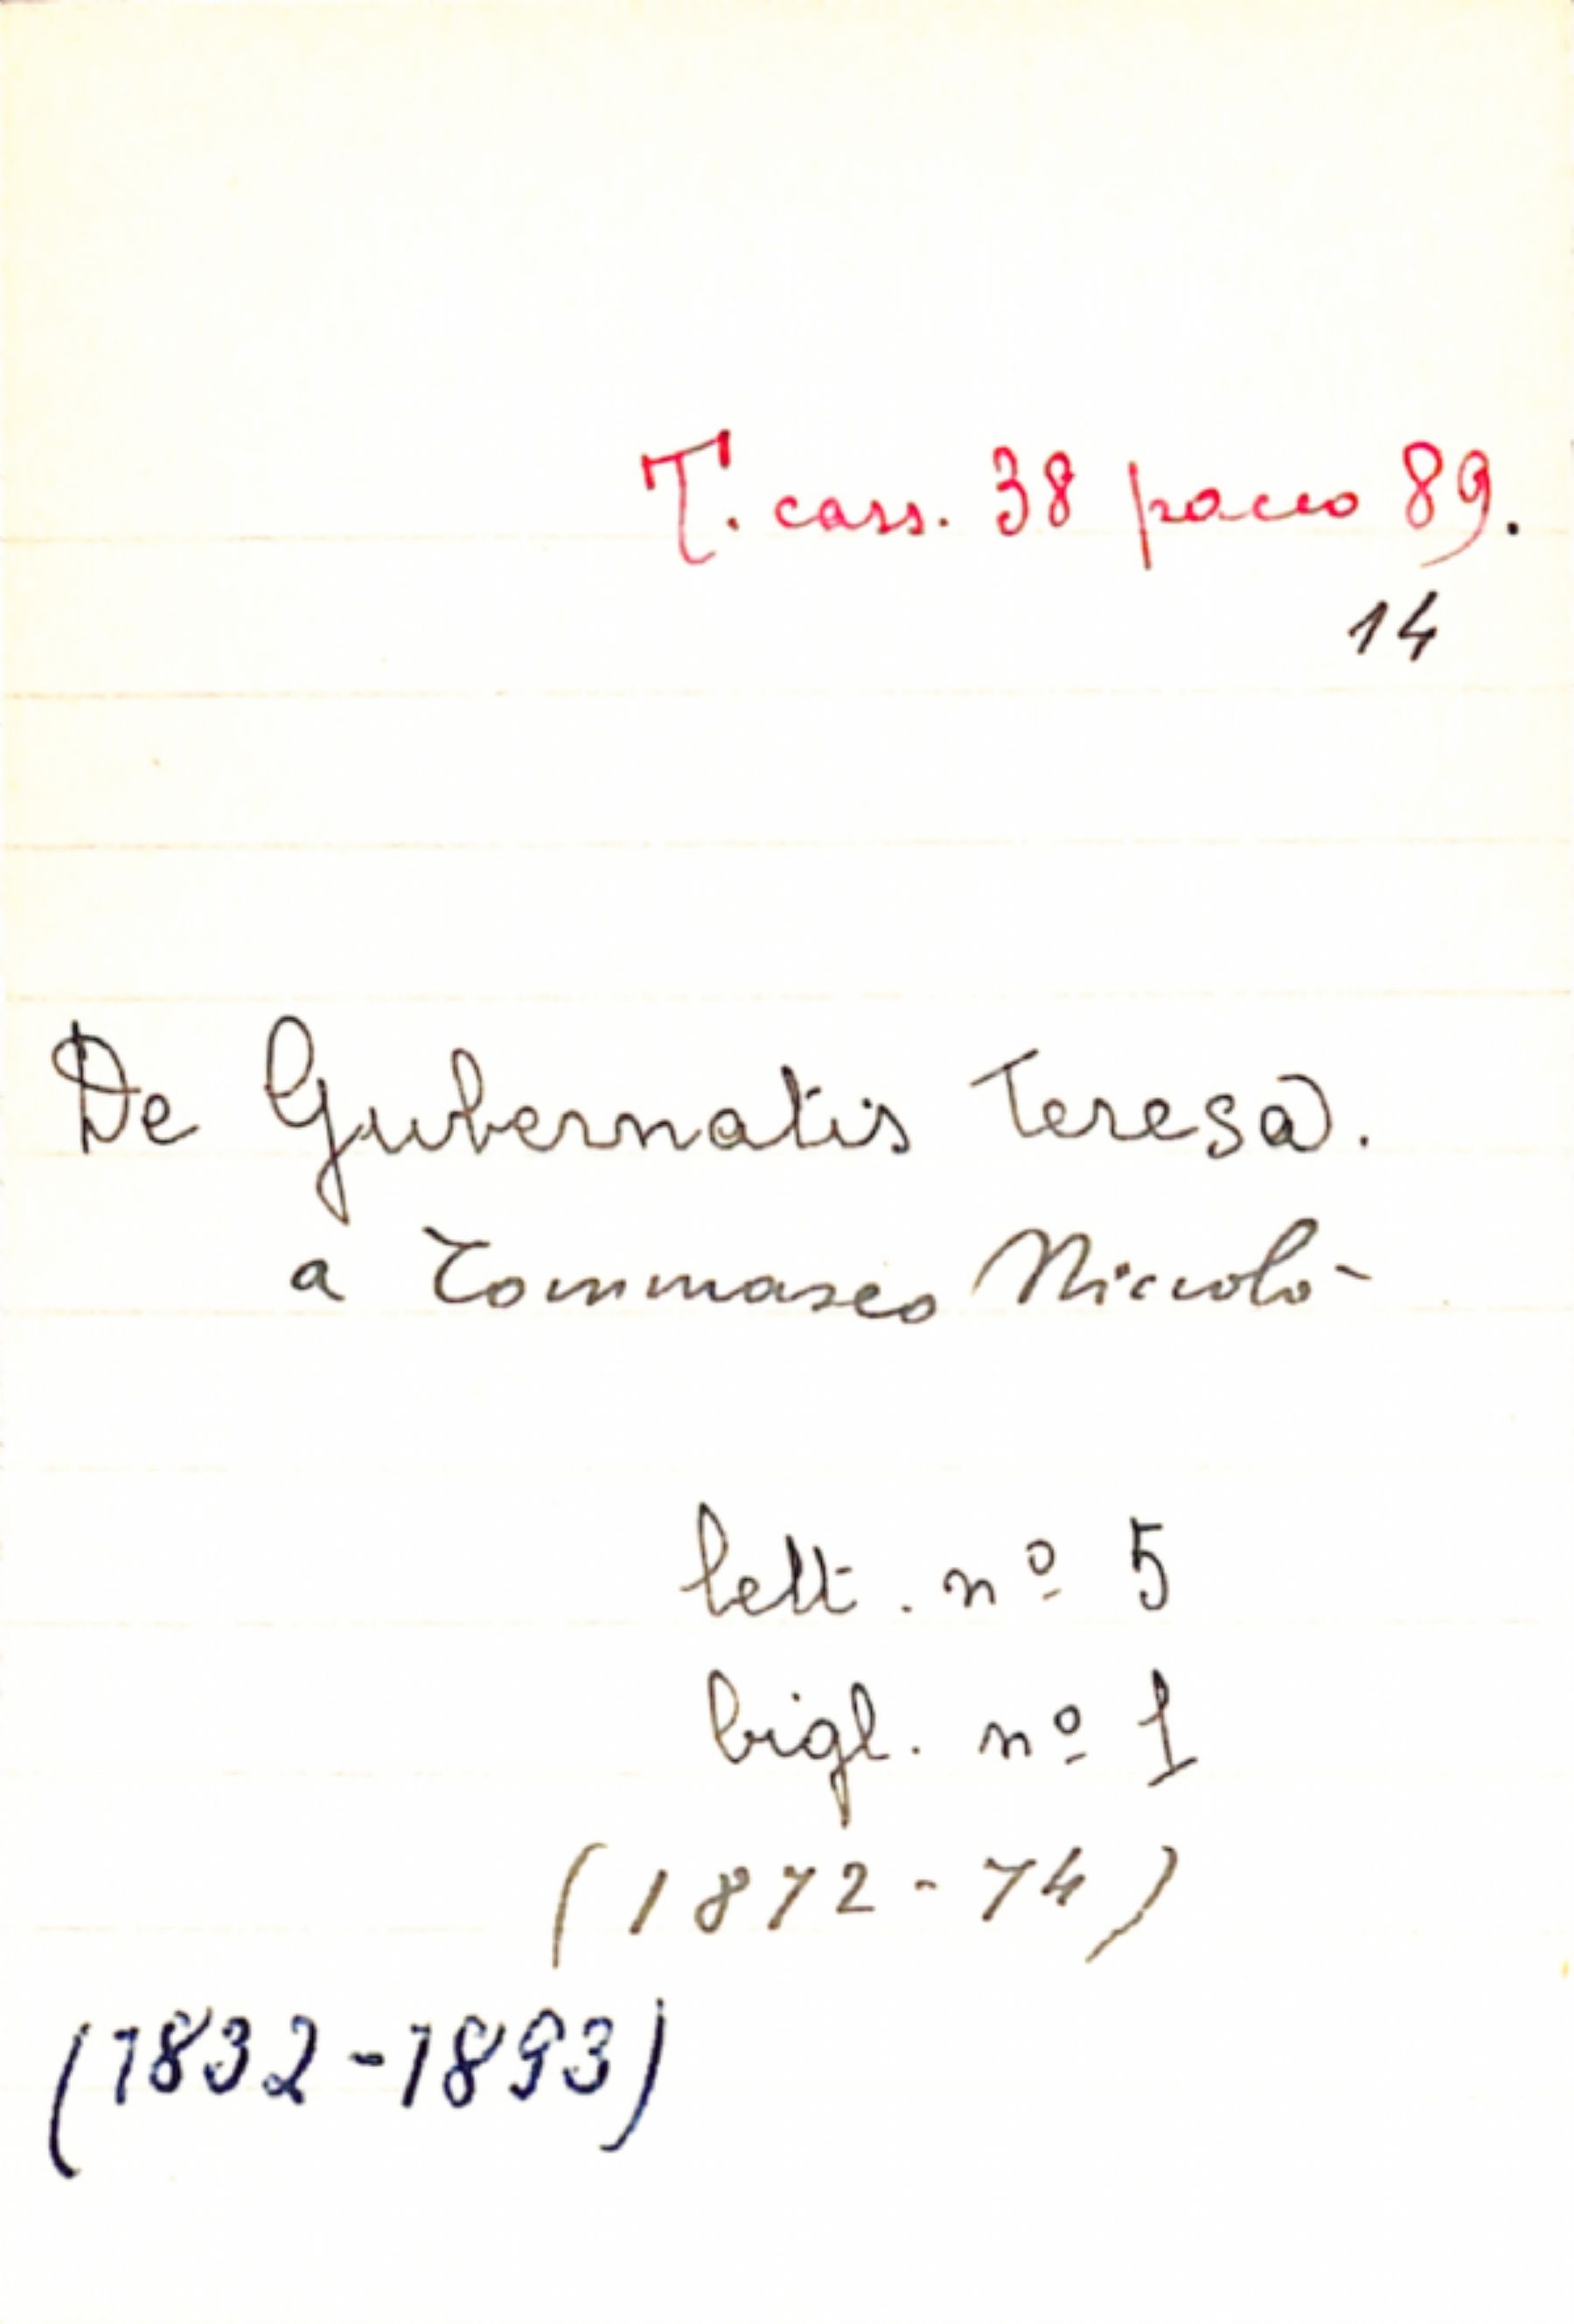 T. cass. 38 pacco 89.
14
De Gubernatis Teresa.
a Tommaseo Niccolò
lett. nº 5
bigl. nº 1
(1872-74)
(1832-1893)